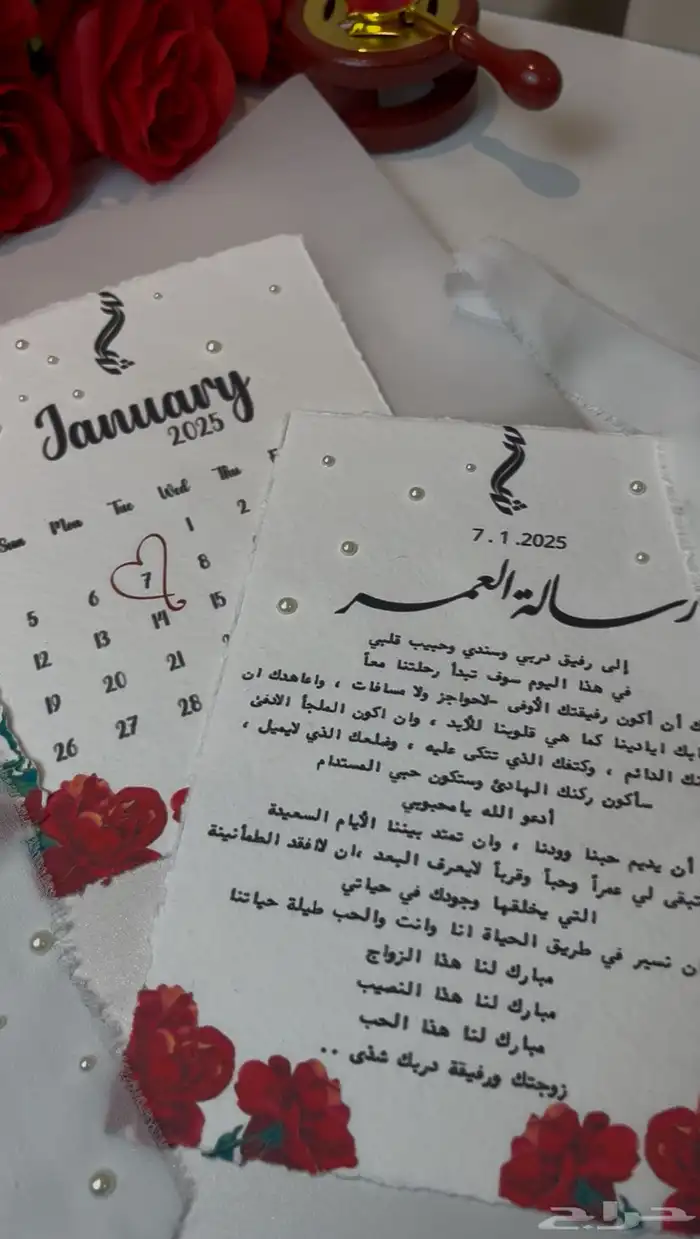 January
2025
Sun Mon Tue Wed Thu F
1 2
5 6 7 8
12 13 14 15
19 20 21
26 27 28
7.1.2025
رسالة العمر
إلى رفيق دربي وسندي وحبيب قلبي
في هذا اليوم سوف تبدأ رحلتنا معاً
أن أكون رفيقتك الأوفى -لاحواجز ولا مسافات ، واعاهدك ان
ايادينا كما هي قلوبنا للأبد ، وان اكون الملجأ الادفئ
الدائم ، وكتفك الذي تتكى عليه ، وضلعك الذي لايميل ،
سأكون ركنك الهادئ وستكون حبي المستدام
أدعو الله يامحبوبي
أن يديم حبنا وودنا ، وان تمتد بيننا الأيام السعيدة
تبقى لي عمراً وحباً وقرباً لايعرف البعد ،ان لاافقد الطمأنينة
التي يخلقها وجودك في حياتي
نسير في طريق الحياة انا وانت والحب طيلة حياتنا
مبارك لنا هذا الزواج
مبارك لنا هذا النصيب
مبارك لنا هذا الحب
زوجتك ورفيقة دربك شذى ..
حراج